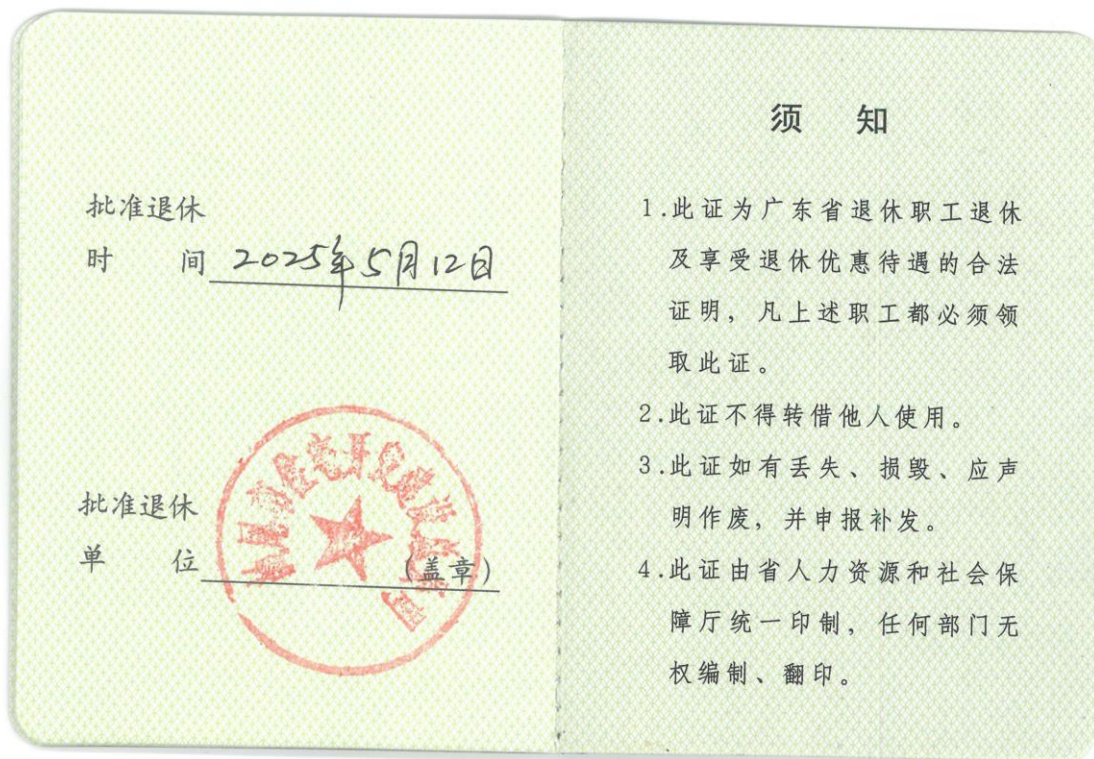 批准退休
时 间 2025年5月12日
批准退休
单 位 (盖章)
须 知
1.此证为广东省退休职工退休
及享受退休优惠待遇的合法
证明,凡上述职工都必须领
取此证。
2.此证不得转借他人使用。
3.此证如有丢失、损毁、应声
明作废,并申报补发。
4.此证由省人力资源和社会保
障厅统一印制,任何部门无
权编制、翻印。